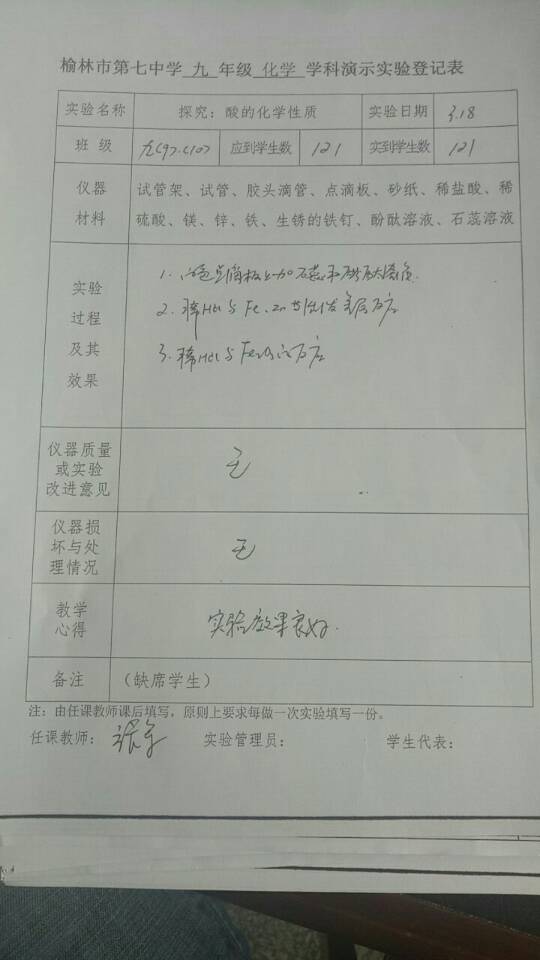 榆林市第七中学 九 年级 化学 学科演示实验登记表
实验名称 探究：酸的化学性质 实验日期 3.18
班 级 应到学生数 121 实到学生数 121
仪器 试管架、试管、胶头滴管、点滴板、砂纸、稀盐酸、稀
材料 硫酸、镁、锌、铁、生锈的铁钉、酚酞溶液、石蕊溶液
实验
过程
及其
效果
1. 点滴板上加石蕊和酚酞
2. 稀HCl与Fe、Zn 金属反应
3. 稀HCl与Fe₂O₃的反应
仪器质量
或实验
改进意见
无
仪器损
坏与处
理情况
无
教学
心得
实验效果良好.
备注 （缺席学生）
注：由任课教师课后填写，原则上要求每做一次实验填写一份。
任课教师： 实验管理员： 学生代表：